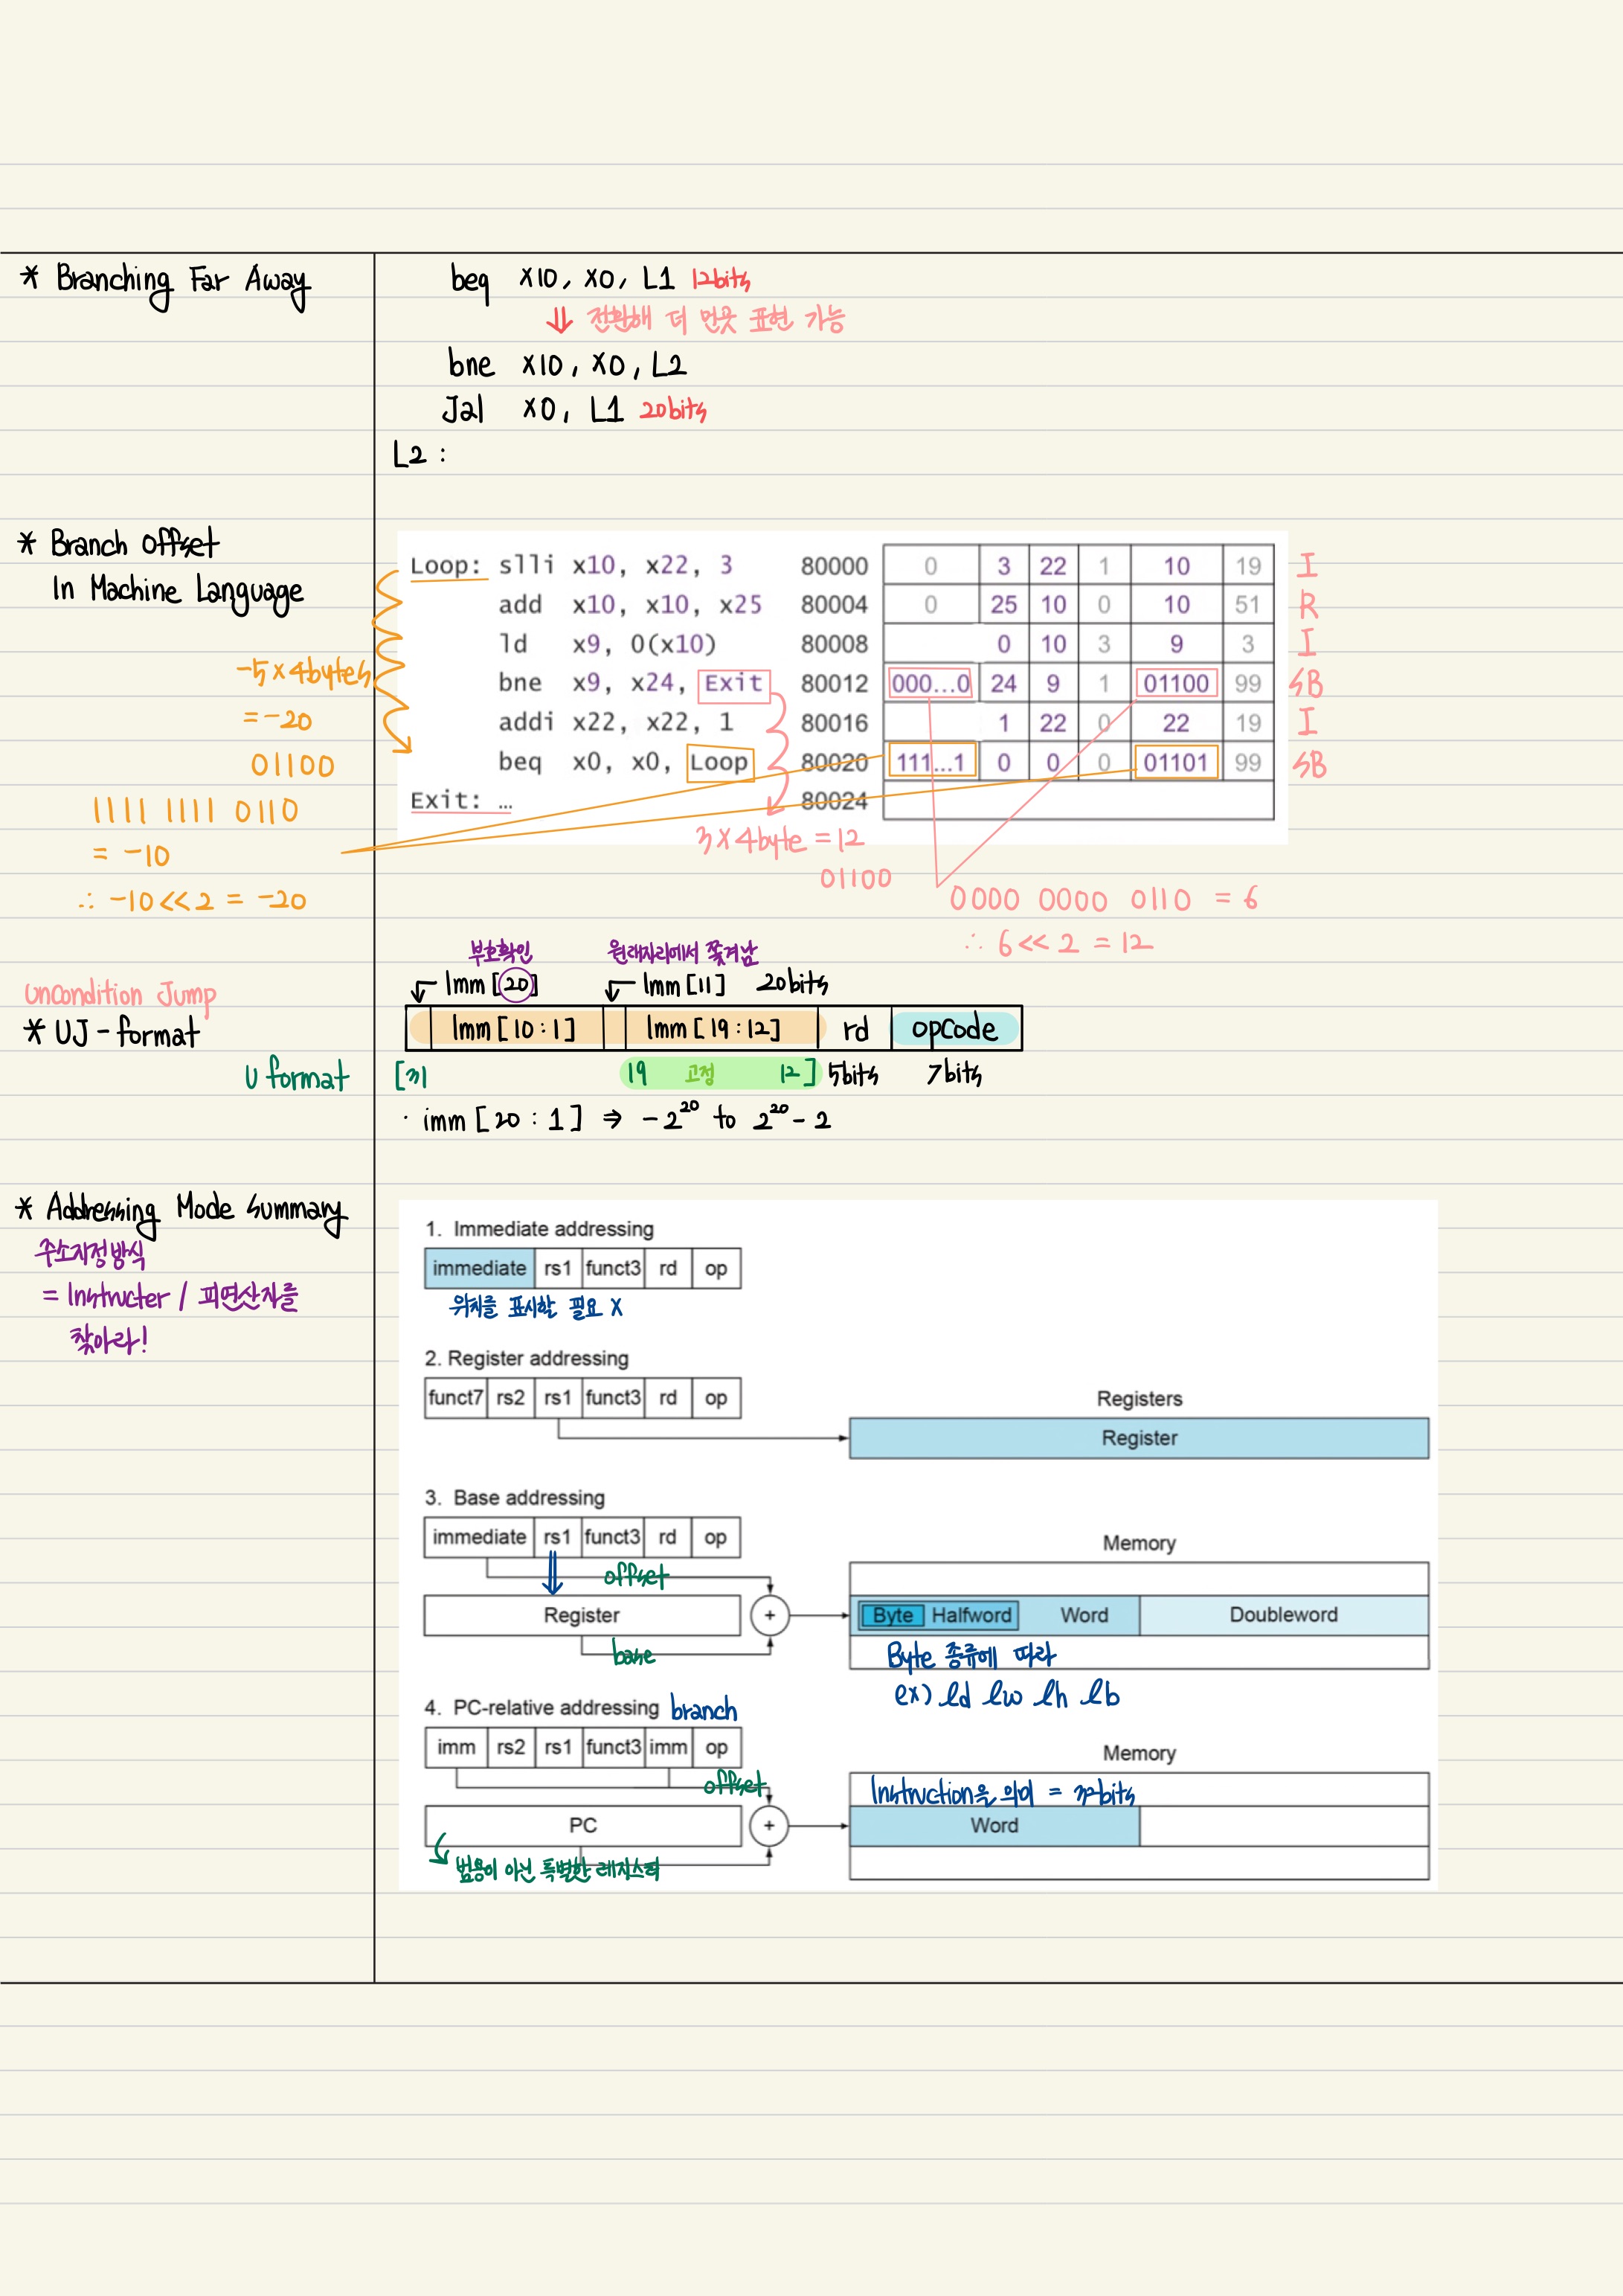 * Branching Far Away
beq x10, x0, L1 12bits
⇓ 전환해 더 먼곳 표현 가능
bne x10, x0, L2
Jal x0, L1 20bits
L2 :
* Branch offset
In Machine Language
-5×4bytes
= -20
01100
1111 1111 0110
= -10
∴ -10<<2 = -20
Loop: slli x10, x22, 3 80000 0 3 22 1 10 19 I
add x10, x10, x25 80004 0 25 10 0 10 51 R
ld x9, 0(x10) 80008 0 10 3 9 3 I
bne x9, x24, Exit 80012 000...0 24 9 1 01100 99 SB
addi x22, x22, 1 80016 1 22 0 22 19 I
beq x0, x0, Loop 80020 111...1 0 0 0 01101 99 SB
Exit: … 80024
3×4byte = 12
01100
0000 0000 0110 = 6
∴ 6<<2 = 12
Uncondition Jump
* UJ-format
U format
부호확인 원래자리에서 쫓겨남
Imm[20] Imm[11] 20bits
Imm[10:1] Imm[19:12] rd opCode
[31 19 고정 12] 5bits 7bits
· imm[20:1] ⇒ -2²⁰ to 2²⁰-2
* Addressing Mode Summary
주소지정방식
= Instructer / 피연산자를
찾아라!
1. Immediate addressing
immediate rs1 funct3 rd op
위치를 표시할 필요 X
2. Register addressing
funct7 rs2 rs1 funct3 rd op
Registers
Register
3. Base addressing
immediate rs1 funct3 rd op
Memory
offset
Register + Byte Halfword Word Doubleword
base
Byte 종류에 따라
ex) ld lw lh lb
4. PC-relative addressing branch
imm rs2 rs1 funct3 imm op
Memory
offset
Instruction을 의미 = 32bits
PC + Word
범용이 아닌 특별한 레지스터